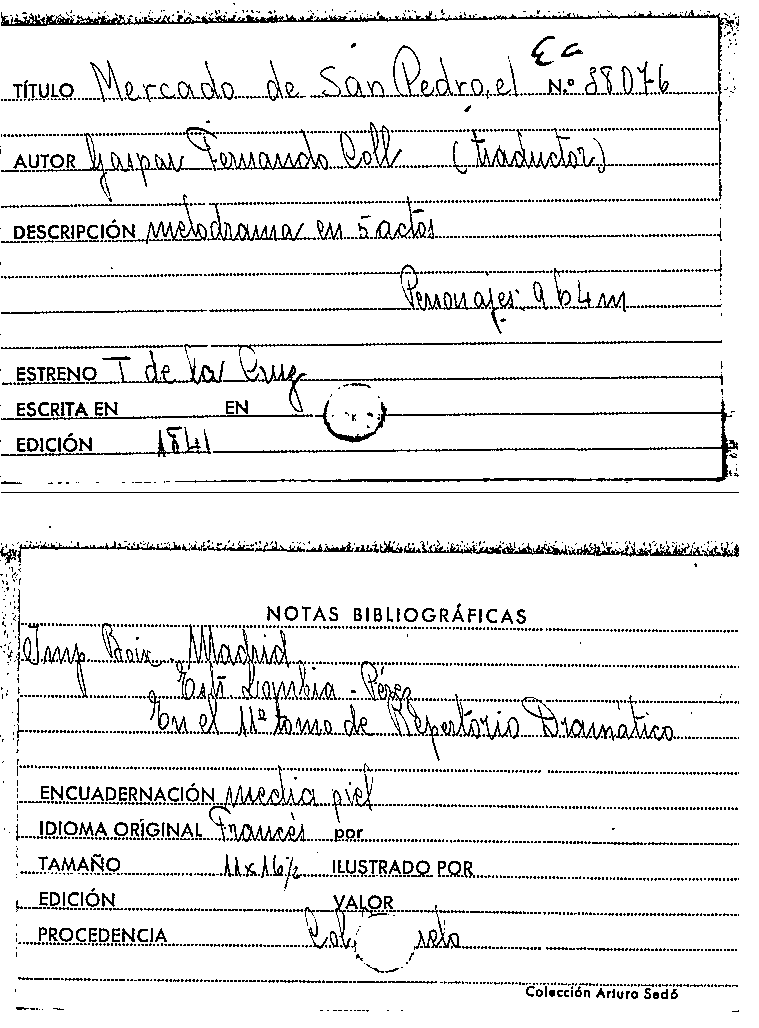 Ca
TÍTULO Mercado de San Pedro, el N.º 88076
AUTOR Gaspar Fernando Coll (traductor)
DESCRIPCIÓN melodrama en 5 actos
Personajes: 9 h 4 m
ESTRENO T de la Cruz
ESCRITA EN EN
EDICIÓN 1841
NOTAS BIBLIOGRÁFICAS
Imp Boix - Madrid
Lombia - Pérez
En el 11º tomo de Repertorio Dramático
ENCUADERNACIÓN media piel
IDIOMA ORIGINAL Francés por
TAMAÑO 11x16½ ILUSTRADO POR
EDICIÓN VALOR
PROCEDENCIA
Colección Arturo Sedó